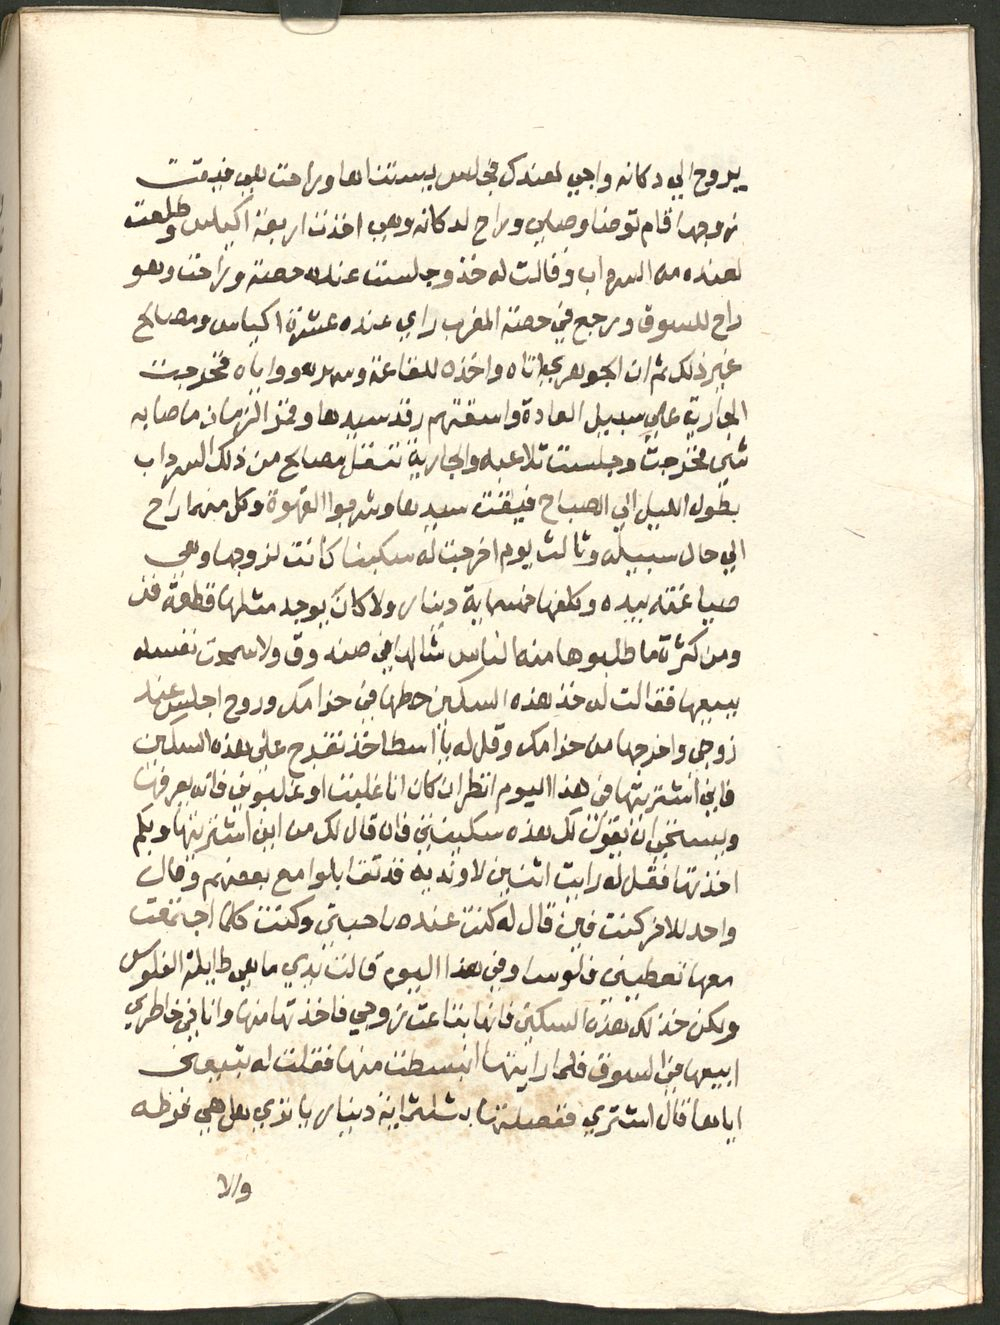 يروح الي دكانه واجي لعندك فجلس يستناها وراحت هي فيقت
زوجها قام توضا وصلي وراح لدكانه وهي اخذت اربعة اكياس وطلعت
لعنده من السرداب وقالت له خذ وجلست عنده حصة وراحت وهو
راح للسوق ورجع في حصة المغرب راي عنده عشرة اكياس ومصالح
غير ذلك ثم ان الجوهرجي اتاه واخذه للقاعة وسهر هو واياه فخرجت
الجارية علي سبيل العادة واسقتهم رقد سيدها وقمر الزمان ما صابه
شي فخرجت وجلست تلاعبه والجارية تنقل مصالح من ذلك السرداب
بطول الليل الي الصباح فيقت سيدها وشربوا القهوة وكل منهما راح
الي حال سبيله وثالث يوم اخرجت له سكينا كانت لزوجها وهي
صياغته بيده وكلفها خمسماية دينار ولا كان يوجد مثلها قطعة قز
ومن كثرة ما طلبوها منه الناس شالها في صندوق ولا سمحت نفسه
ببيعها فقالت له خذ هذه السكين حطها في حزامك وروح اجلس عند
زوجي واخرجها من حزامك وقل له يا اسطا خذ تفرج علي هذه السكين
فاني اشتريتها في هذا اليوم انظر ان كان انا غلبت او غلبوني فانه يعرفها
ويستحي ان يقول لك هذه سكينتي فان قال لك من اين اشتريتها وبكم
اخذتها فقل له رايت اثنين لاوندية قد تقابلوا مع بعضهم وقال
واحد للاخر كنت فين قال له كنت عنده صاحبتي وكنت كلما اجتمعت
معها تعطيني فلوسا وفي هذا اليوم قالت يدي ما هي طايلة الفلوس
ولكن خذ لك هذه السكين فانها بتاعت زوجي فاخذتها منها وانا في خاطري
ابيعها في السوق فلما رايتها انبسطت منها فقلت له تبيعني
اياها قال اشتري ففصلتها بثلثماية دينار يا تري هل هي غرظه
والا